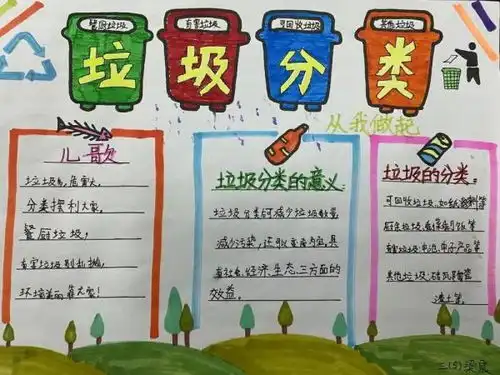 餐厨垃圾 有害垃圾 可回收垃圾 其他垃圾
垃 圾 分 类
从我做起
儿歌
垃圾多,危害大,
分类摆利大家,
餐厨垃圾,
有害垃圾别乱抛,
环境美丽靠大家!
垃圾分类的意义:
垃圾分类可减少垃圾数量,
减少污染,还
有社会、经济、生态、三方面的
效益。
垃圾的分类:
可回收垃圾:如纸
厨余垃圾:
有害垃圾:电池、电子产品等
其他垃圾:砖瓦
渣土等。
三(5)